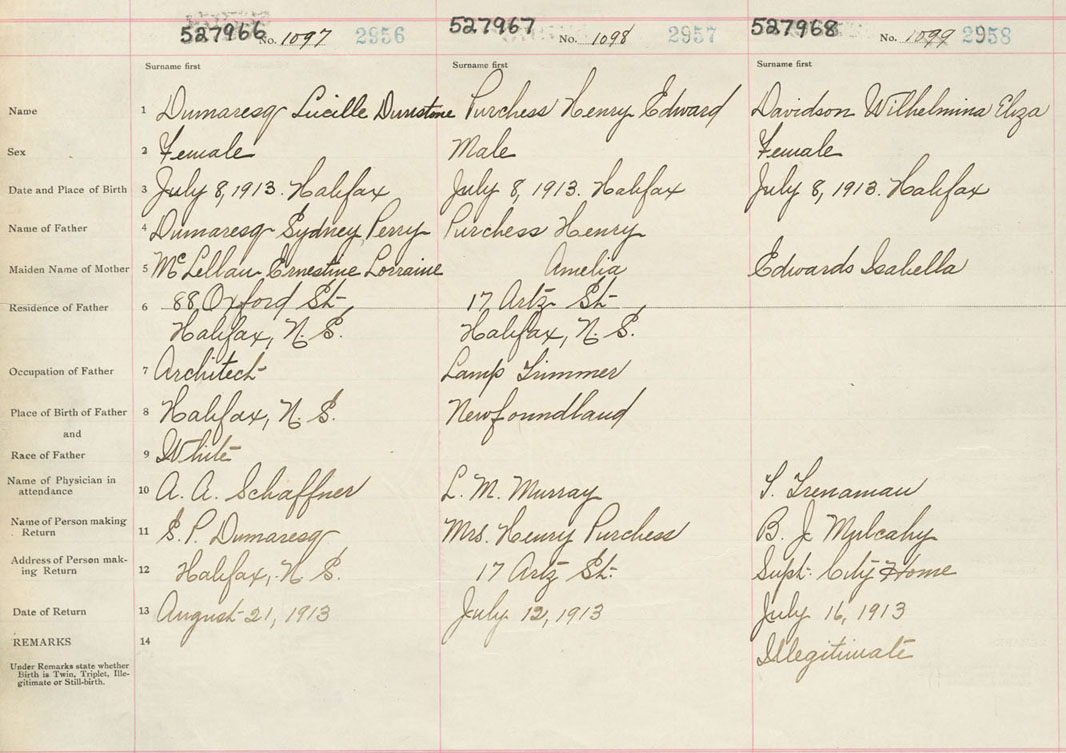 527966 No. 1097 2956 527967 No. 1098 2957 527968 No. 1099 2958
Surname first Surname first Surname first
Name 1 Dumaresq Lucille Dunstone Purchess Henry Edward Davidson Wilhelmina Eliza
Sex 2 Female Male Female
Date and Place of Birth 3 July 8, 1913. Halifax July 8, 1913. Halifax July 8, 1913. Halifax
Name of Father 4 Dumaresq Sydney Perry Purchess Henry
Maiden Name of Mother 5 McLellan Ernestine Lorraine Amelia Edwards Isabella
Residence of Father 6 88 Oxford St. 17 Artz St.
Halifax, N. S. Halifax, N. S.
Occupation of Father 7 Architect Lamp Trimmer
Place of Birth of Father 8 Halifax, N. S. Newfoundland
and
Race of Father 9 White
Name of Physician in
attendance 10 A. A. Schaffner L. M. Murray T. Trenaman
Name of Person making
Return 11 S. P. Dumaresq Mrs. Henry Purchess B. J. Mulcahy
Address of Person mak-
ing Return 12 Halifax, N. S. 17 Artz St. Supt. City Home
Date of Return 13 August 21, 1913 July 12, 1913 July 16, 1913
REMARKS 14 Illegitimate
Under Remarks state whether
Birth is Twin, Triplet, Ille-
gitimate or Still-birth.